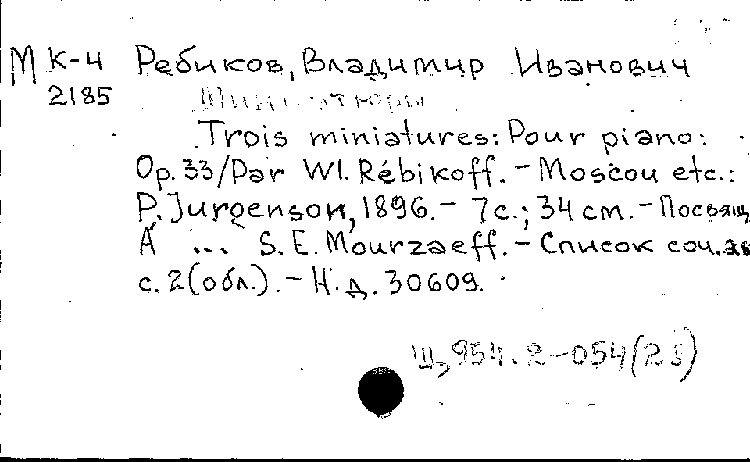 М К-4 Ребиков, Владимир Иванович
2185 Миниатюры
Trois miniatures: Pour piano:
Op. 33/Par Wl. Rébikoff. - Moscou etc.:
P. Jurgenson, 1896. - 7 с.; 34 см. - Посвящ.
A ... S. E. Mourzaeff. - Список соч. ав
с. 2 (обл.). - Н. д. 30609.
Щ 954.2-054(2